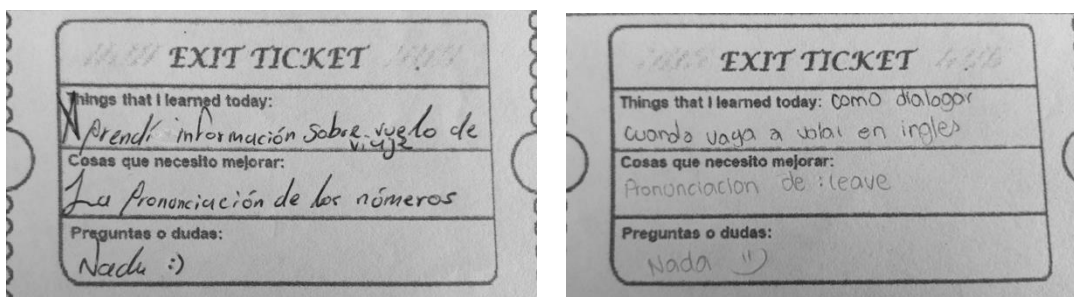 EXIT TICKET
Things that I learned today:
Aprendí información sobre vuelo de
viaje
Cosas que necesito mejorar:
La Prononciación de los números
Preguntas o dudas:
Nada :)
EXIT TICKET
Things that I learned today: como dialogar
cuando vaya a volar en ingles
Cosas que necesito mejorar:
Prononciacion de : leave
Preguntas o dudas:
Nada :)